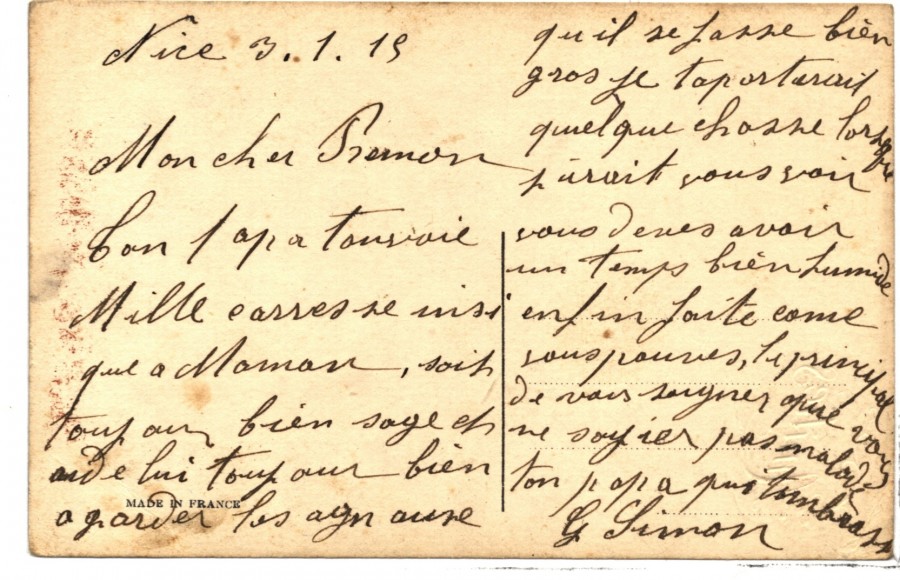 Nice 3.1.19
Mon cher Simon
Ton papa t'envoie
Mille carresse insi
que a Maman, soit
toujour bien sage et
aide lui toujour bien
a garder les agnause
MADE IN FRANCE
qu'il se fasse bien
gros je t'aporterait
quelque chosse lorsque
j'irait vous voir
vous deves avoir
un temps bien humide
enfin faite come
vous pouves, le principal
de vous soigner que vous
ne soyier pas malade
ton papa qui t'embrasse
G Simon